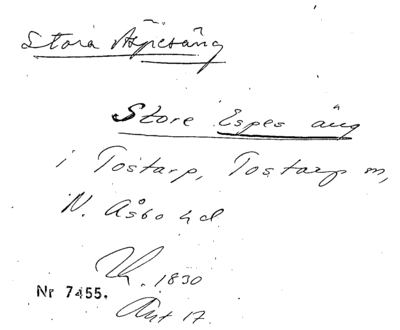 Stora Äspesäng
Store Espes äng
i Tostarp, Tostarp m,
N. Åsbo hd
1830
Nr 7455. Akt 17